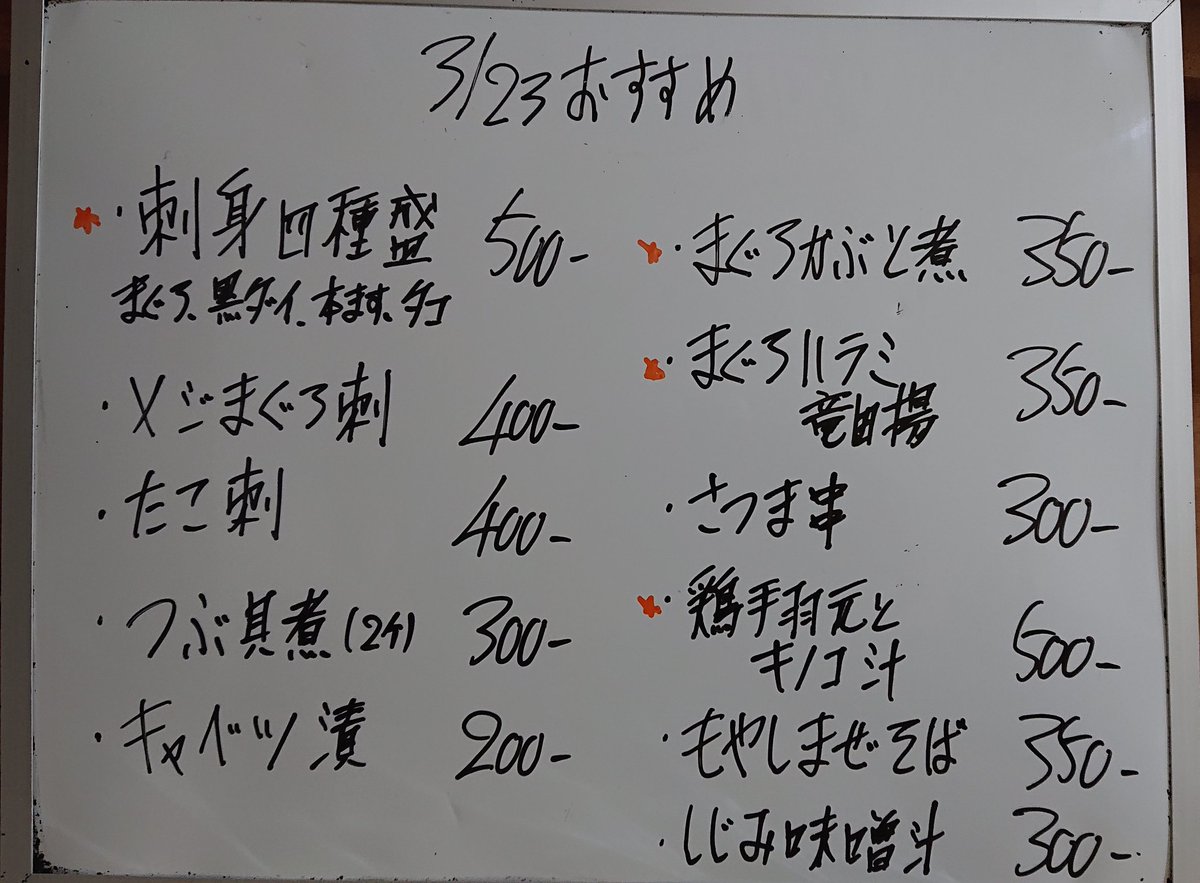 3/23おすすめ
・刺身四種盛 500-
まぐろ、黒ダイ、本ます、タコ
・メジまぐろ刺 400-
・たこ刺 400-
・つぶ貝煮(2ケ) 300-
・キャベツ漬 200-
・まぐろかぶと煮 350-
・まぐろハラミ
竜田揚 350-
・さつま串 300-
・鶏手羽元と
キノコ汁 500-
・もやしまぜそば 350-
・しじみ味噌汁 300-